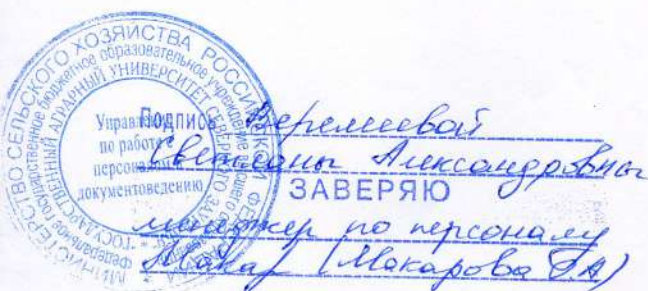 МИНИСТЕРСТВО СЕЛЬСКОГО ХОЗЯЙСТВА РОССИЙСКОЙ
государственное бюджетное образовательное учреждение
ГОСУДАРСТВЕННЫЙ АГРАРНЫЙ УНИВЕРСИТЕТ СЕВЕРНОГО ЗАУРАЛЬЯ
Управление
по работе с
персоналом и
документоведению
Подпись Веремеевой
Светланы Александровны
ЗАВЕРЯЮ
менеджер по персоналу
Макар (Макарова